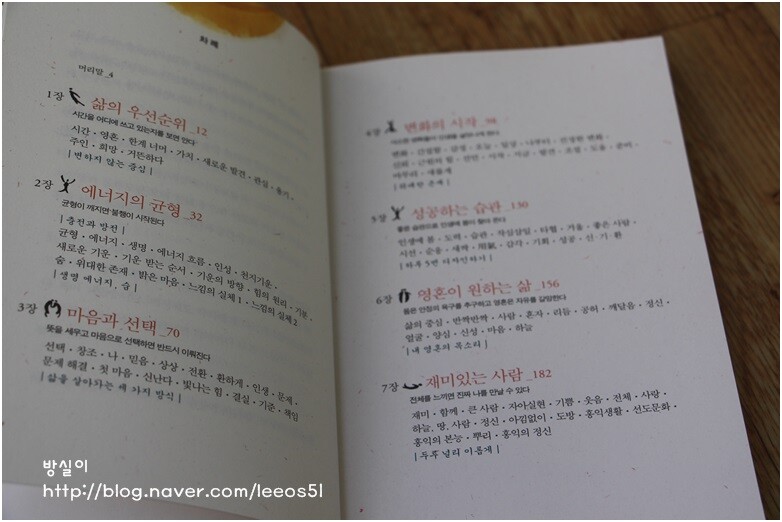 차례
머리말_4
1장 삶의 우선순위_12
시간을 어디에 쓰고 있는지를 보면 안다
시간·영혼·한계 너머·가치·새로운 발견·관심·용기·
주인·희망·거듭나다
|변하지 않는 중심|
2장 에너지의 균형_32
균형이 깨지면 불행이 시작된다
|충전과 방전|
균형·에너지·생명·에너지 흐름·인성·천지기운·
새로운 기운·기운 받는 순서·기운의 방향·힘의 원리·기본·
숨·위대한 존재·밝은 마음·느낌의 실체 1·느낌의 실체 2
|생명 에너지, 숨|
3장 마음과 선택_70
뜻을 세우고 마음으로 선택하면 반드시 이뤄진다
선택·창조·나·믿음·상상·전환·환하게·인생·문제·
문제 해결·첫 마음·신난다·빛나는 힘·결실·기준·책임
|삶을 살아가는 세 가지 방식|
4장 변화의 시작_98
변화·간절함·감정·오늘·일상·나부터·진정한 변화·
5장 성공하는 습관_130
좋은 습관으로 인생에 봄이 핀다
인생에 봄·도력·습관·작심삼일·타협·거울·좋은 사람·
시선·순응·새싹·用氣·감각·기회·성공·신·기·환
|하루 5번 디자인하기|
6장 영혼이 원하는 삶_156
몸은 안정의 욕구를 추구하고 영혼은 자유를 갈망한다
삶의 중심·반짝반짝·사람·혼자·리듬·공허·깨달음·정신·
얼굴·양심·신성·마음·하늘
|내 영혼의 목소리|
7장 재미있는 사람_182
전체를 느끼면 진짜 나를 만날 수 있다
재미·함께·큰 사람·자아실현·기쁨·웃음·전체·사랑·
하늘, 땅, 사람·정신·아낌없이·도방·홍익생활·선도문화·
홍익의 본능·뿌리·홍익의 정신
|두루 널리 이롭게|
방실이
http://blog.naver.com/leeos51